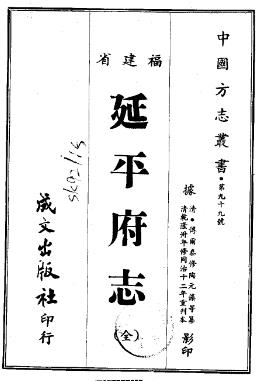 中國方志叢書・第九十九號
據清・傅爾泰修陶元藻等纂
清乾隆卅年修同治十二年重刊本
影印
福建省
延平府志
(全)
成文出版社印行